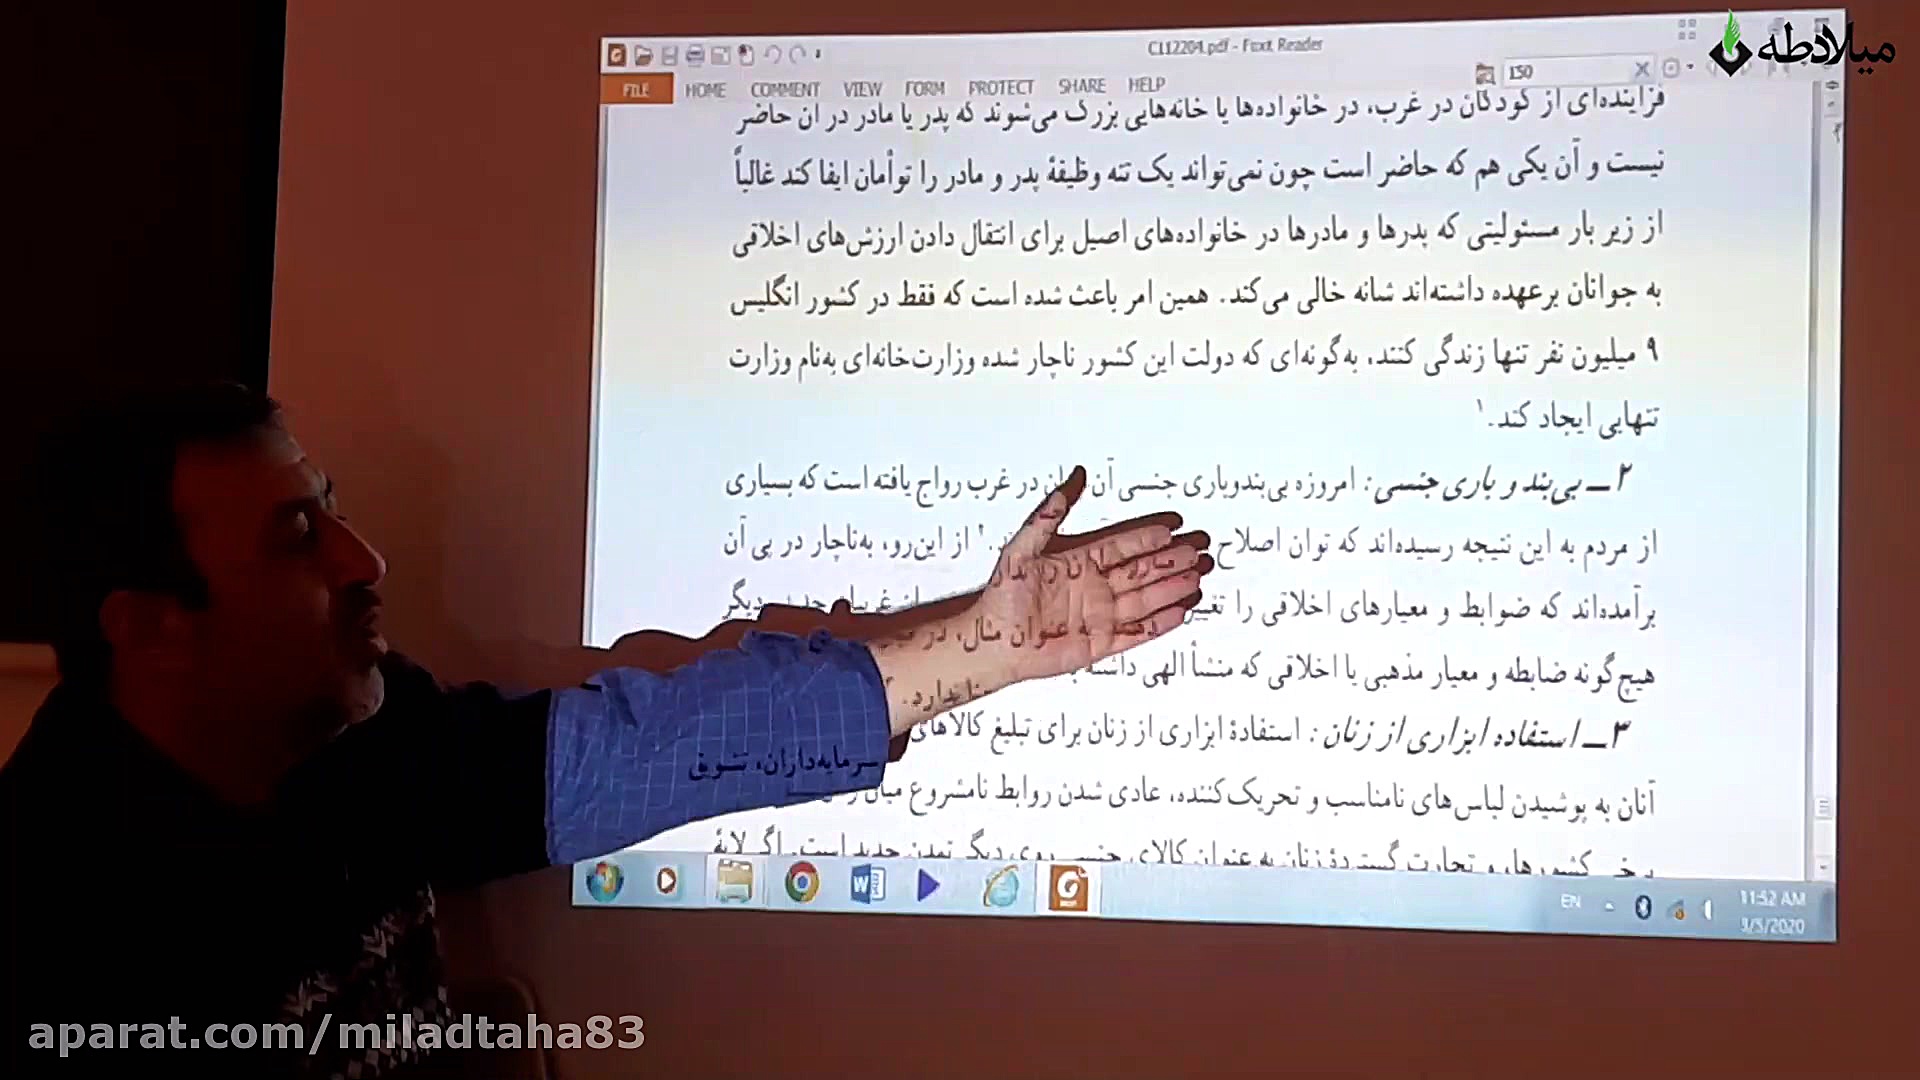 میلادطه
C112204.pdf - Foxit Reader
FILE HOME COMMENT VIEW FORM PROTECT SHARE HELP
150
فزاینده‌ای از کودکان در غرب، در خانواده‌ها یا خانه‌هایی بزرگ می‌شوند که پدر یا مادر در آن حاضر
نیست و آن یکی هم که حاضر است چون نمی‌تواند یک تنه وظیفهٔ پدر و مادر را توأمان ایفا کند غالباً
از زیر بار مسئولیتی که پدرها و مادرها در خانواده‌های اصیل برای انتقال دادن ارزش‌های اخلاقی
به جوانان برعهده داشته‌اند شانه خالی می‌کند. همین امر باعث شده است که فقط در کشور انگلیس
۹ میلیون نفر تنها زندگی کنند، به‌گونه‌ای که دولت این کشور ناچار شده وزارت‌خانه‌ای به‌نام وزارت
تنهایی ایجاد کند.۱
۲ـ بی‌بند و باری جنسی: امروزه بی‌بندوباری جنسی آن در غرب رواج یافته است که بسیاری
از مردم به این نتیجه رسیده‌اند که توان اصلاح از این‌رو، به‌ناچار در پی آن
برآمده‌اند که ضوابط و معیارهای اخلاقی را تغییر دهند. به عنوان مثال، در دیگر
هیچ‌گونه ضابطه و معیار مذهبی یا اخلاقی که منشأ الهی داشته ندارد.
۳ـ استفاده ابزاری از زنان: استفادهٔ ابزاری از زنان برای تبلیغ کالاهای سرمایه‌داران، تشویق
آنان به پوشیدن لباس‌های نامناسب و تحریک‌کننده، عادی شدن روابط نامشروع میان
برخی کشورها، و تجارت گستردهٔ زنان به عنوان کالای جنسی روی دیگر تمدن جدید است. اگر لایهٔ
EN
11:52 AM
3/5/2020
aparat.com/miladtaha83